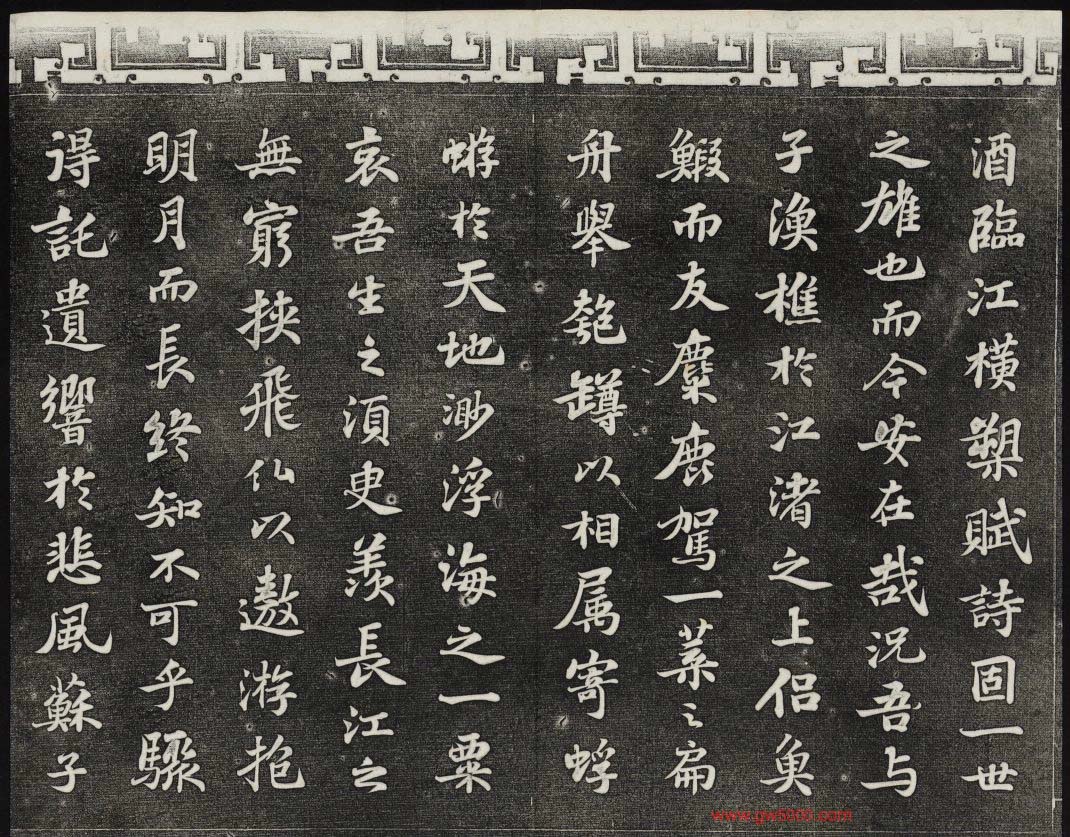 酒臨江橫槊賦詩固一世
之雄也而今安在哉況吾与
子漁樵於江渚之上侣魚
鰕而友麋鹿駕一葉之扁
舟舉匏罇以相属寄蜉
蝣於天地渺浮海之一粟
哀吾生之須臾羨長江之
無窮挾飛仙以遨游抱
明月而長終知不可乎驟
得託遺響於悲風蘇子